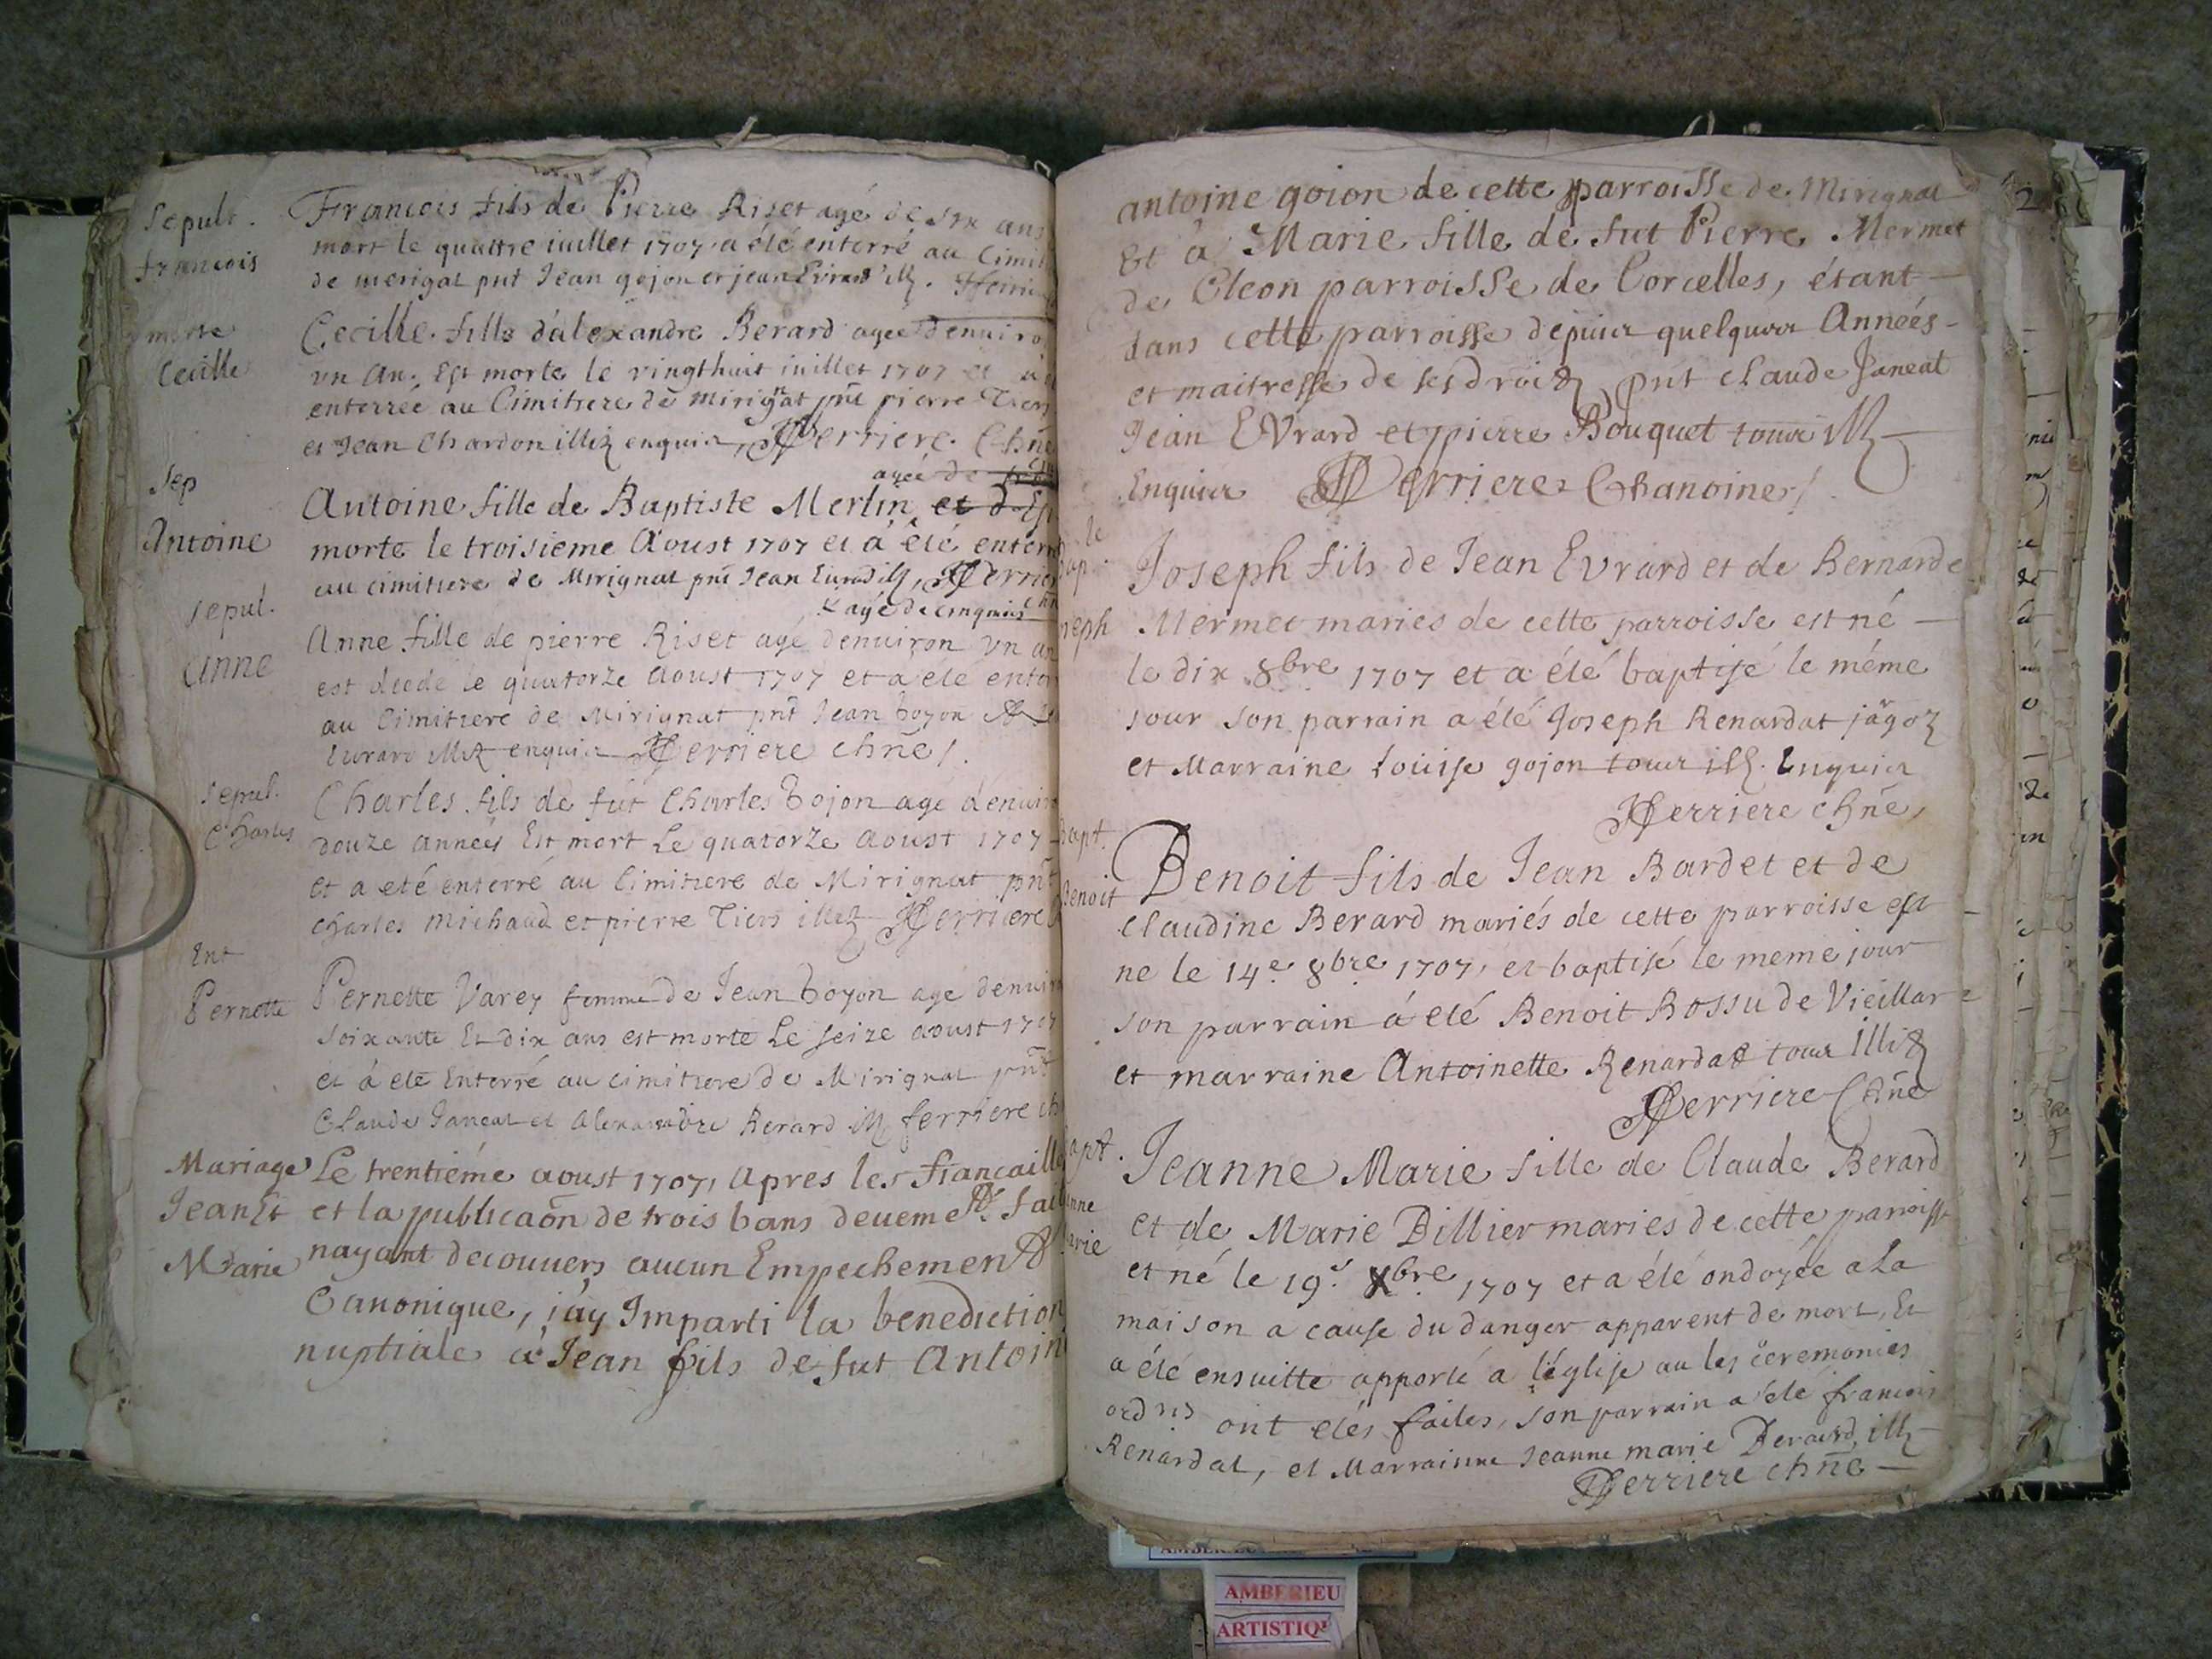 Sepult.
francois
Francois fils de Pierre Riset agé de six ans
mort le quattre iuillet 1707 a élé enterré au Cimit
de merigat pnt Jean gojon et jean Evrard illz.
morte
Cecille
Cecille fille d'alexandre Berard agee denuiro
un An. Est morte le vingthuit iuillet 1707 et a
enterrée au Cimitiere de mirignat pnt pierre Tiers
et Jean Chardon illiz enquis, Ferriere Chñe
Sep
Antoine
agée de
Antoine fille de Baptiste Merlin et d
morte le troisieme Aoust 1707 et á été enterr
au cimitiere de Mirignat pnt Jean Eurad illz, Ferrier
chñ
sepul.
Anne
x agé de cinq mois
Anne fille de pierre Riset agé denuiron vn an
est decede le quatorze Aoust 1707 et a élé enter
au Cimitiere de Mirignat pnt Jean Goyon
Eurard illz enquis Ferriere chñe /.
sepul.
Charles
Charles fils de fut Charles Gojon age denuir
douze années Est mort Le quatorze Aoust 1707
et a eté enterré au Cimitiere de Mirignat pnt
charles michaud et pierre Tiers illiz Ferriere
Ent
Pernette
Pernette Varey femme de Jean Goyon age denuir
soixante Et dix ans est morte Le seize aoust 1707
et á ete Enterré au cimitiere de Mirignat pnt
Claude Janeat et Alexandre Berard illz ferriere ch
Mariage
Jean Et
Marie
Le trentiéme aoust 1707, Apres les fiançaille
et la publicaõn de trois bans deueme fai
nayant decouuers aucun Empechement
Canonique, j'ay Imparti la benediction
nuptiale à Jean fils de fut Antoin
antoine goion de cette parroisse de Mirignat
Et à Marie fille de fut Pierre Mermet
de Cleon parroisse de Corcelles, étant
dans cette parroisse depuis quelques Années
et maitresse de ses droitz pnt claude Janeat
Jean EVrard et pierre Bouquet tous illz
Enquis Ferriere Chanoine /.
Joseph fils de Jean Evrard et de Bernarde
Mermet mariés de cette parroisse est né
le dix 8bre 1707 et a élé baptisé le méme
jour son parrain a élé Joseph Renardat
et Marraine Louise gojon tous illz. Enquis
Ferriere chñe,
Bapt.
Benoit
Benoit fils de Jean Bardet et de
Claudine Berard mariés de cette parroisse est
ne le 14e 8bre 1707, et baptisé le meme jour
son parrain á elé Benoit Bossu de Vieillar
et marraine Antoinette Renardat tous illiz
Ferriere Chñe
apt.
anne
arie
Jeanne Marie fille de Claude Berard
et de Marie Billier maries de cette parroisse
et né le 19e Xbre 1707 et a élé ondoyée a La
maison a cause du danger apparent de mort, Et
a été ensuitte apporté a l'église ou les ceremonies
ordres ont elés failes, son parrain a élé francois
Renardat, et Marrainne Jeanne marie Berard, illz
Ferriere chñe
AMBERIEU
ARTISTIQ